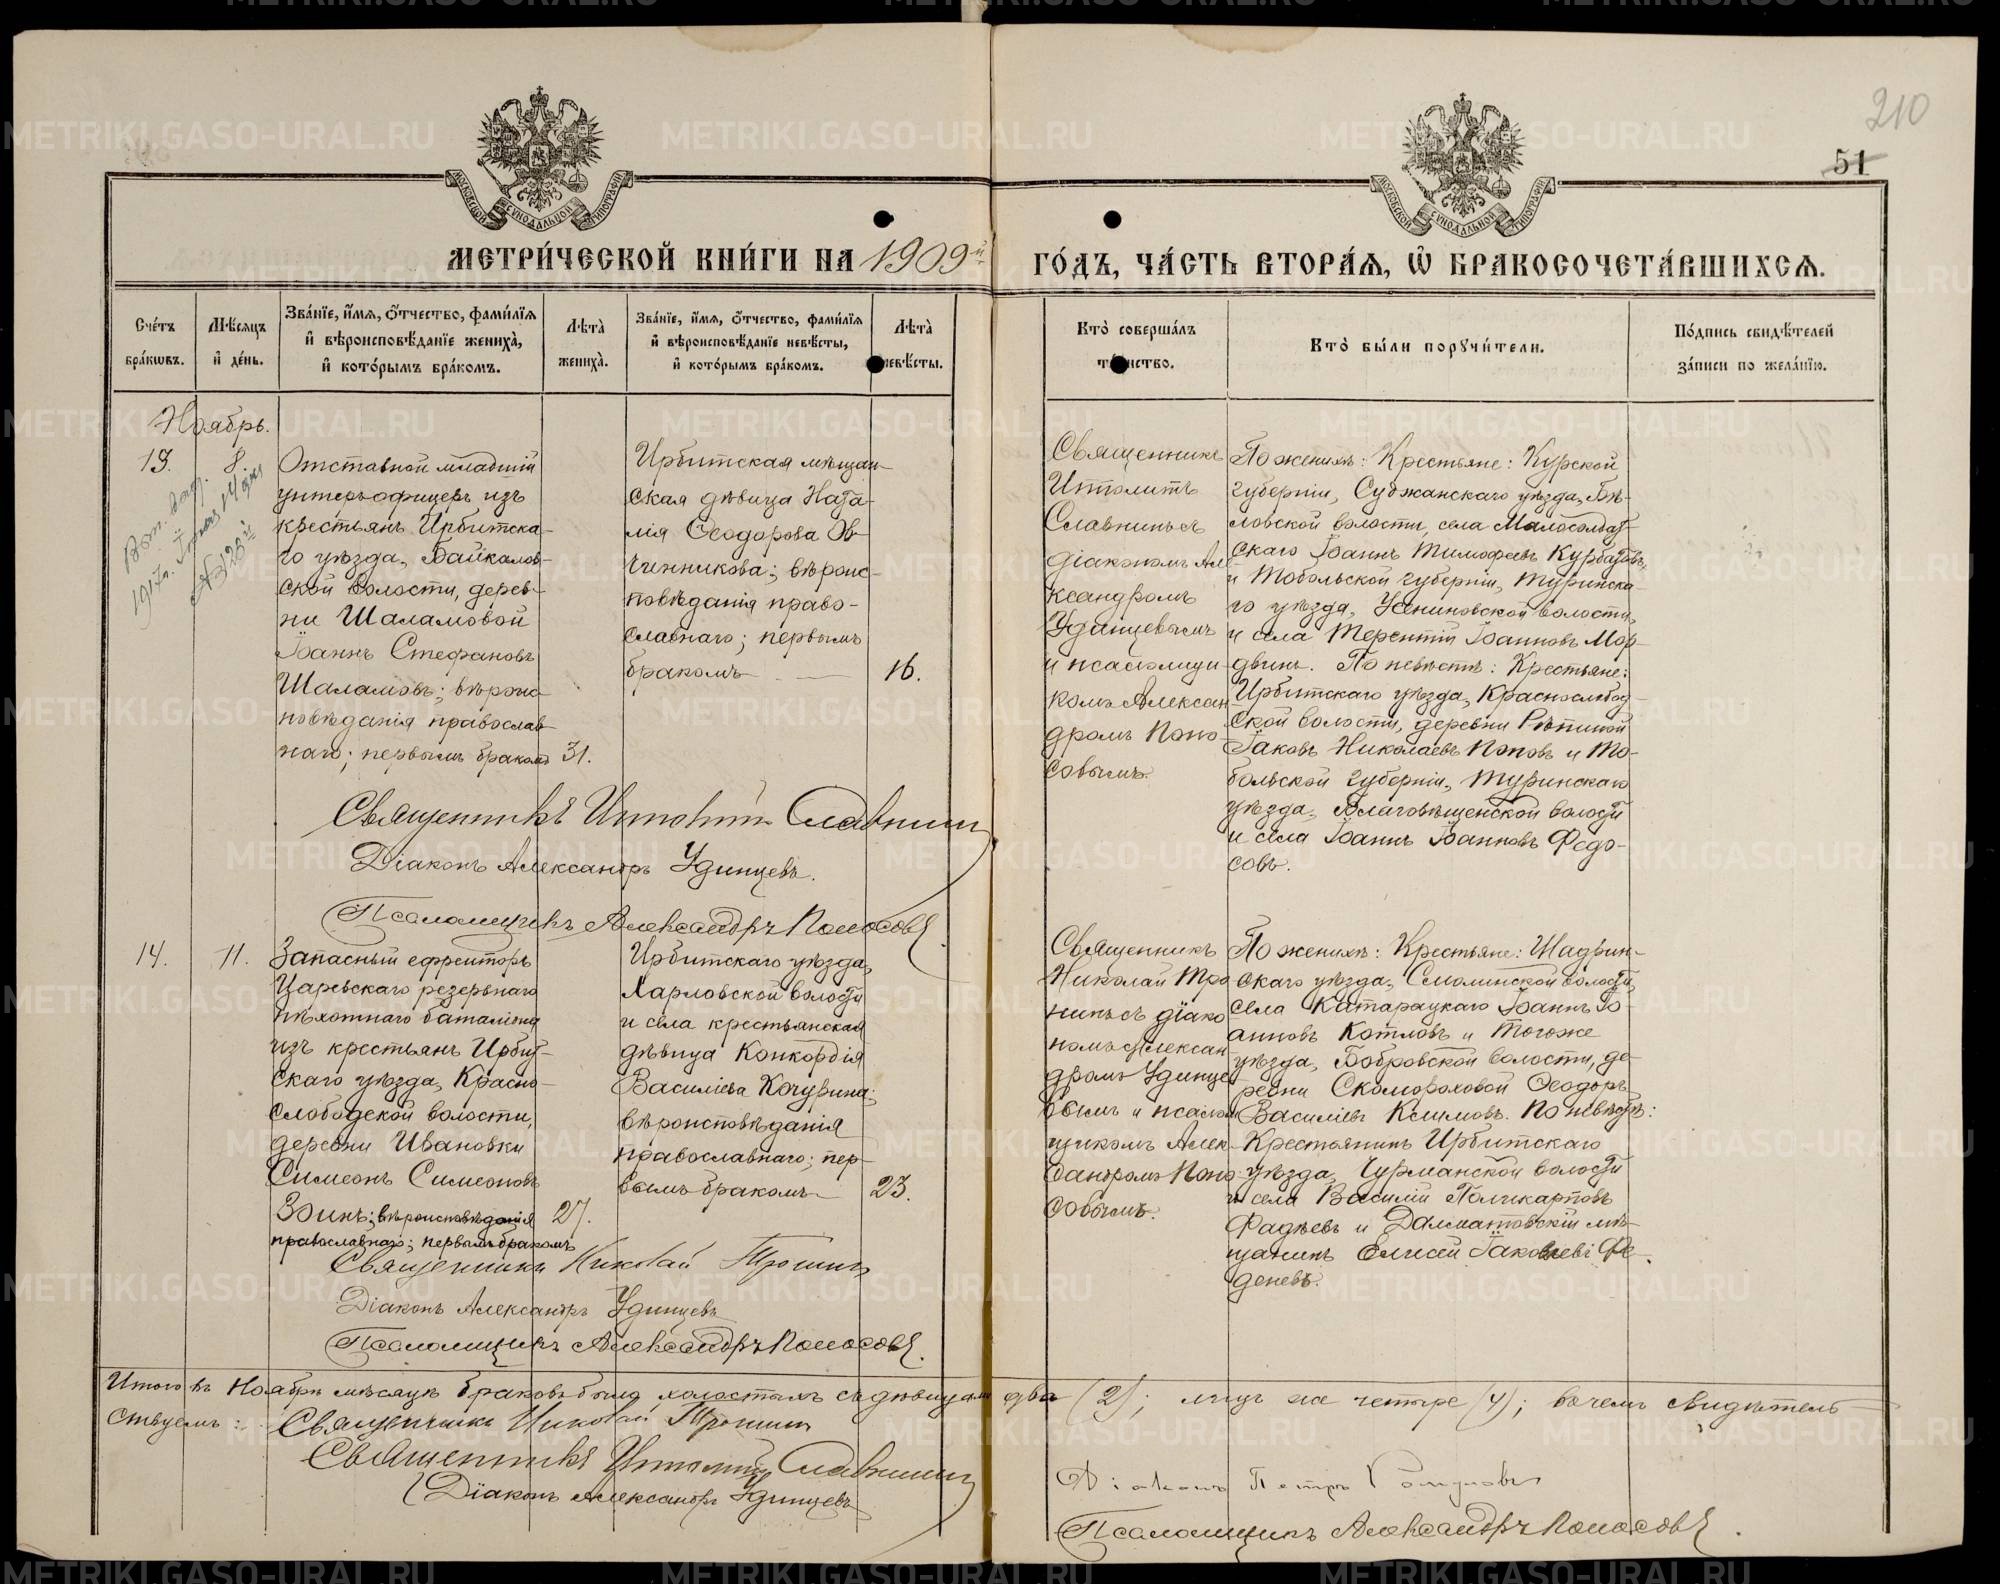 210
51
МОСКОВСКОЙ СѴНОДАЛЬНОЙ ТИПОГРАФІИ
МОСКОВСКОЙ СѴНОДАЛЬНОЙ ТИПОГРАФІИ
МЕТРИ́ЧЕСКОЙ КНИ́ГИ НА 1909й
ГО́ДЪ, ЧА́СТЬ ВТОРА́Ѧ, Ѡ БРАКОСОЧЕТА́ВШИХСѦ.
Сче́тъ бра́кѡвъ.
Мѣ́сѧцъ и҆ де́нь.
Зва́нїе, и҆́мѧ, ѻ҆́тчество, фами́лїѧ и҆ вѣроисповѣ́данїе жениха̀, и҆ кото́рымъ бра́комъ.
Лѣ́та̀ жениха̀.
Зва́нїе, и҆́мѧ, ѻ҆́тчество, фами́лїѧ и҆ вѣроисповѣ́данїе невѣ́сты, и҆ кото́рымъ бра́комъ.
Лѣ́та̀ невѣ́сты.
Кто̀ соверша́лъ та́инство.
Кто̀ бы́ли порꙋчи́тели.
По́дпись свидѣ́телей за́писи по жела́нїю.
Ноябрь.
13.
8.
1917 г.
14 дня
№ 128й
Отставной младшій
унтеръ-офицеръ изъ
крестьянъ Ирбитска-
го уѣзда, Байкалов-
ской волости, дерев-
ни Шаламовой
Іоаннъ Стефановъ
Шаламовъ; вѣроис-
повѣданія православ-
наго; первымъ бракомъ
31.
Ирбитская мѣщан-
ская дѣвица Ната-
лія Ѳеодорова Ов-
чинникова; вѣроис-
повѣданія право-
славнаго; первымъ
бракомъ
16.
Священникъ
Ипполитъ
Славнинъ съ
діакономъ Але
ксандромъ
Удинцевымъ
и псаломщи
комъ Алексан
дромъ Поно-
совымъ.
По женихѣ: Крестьяне: Курской
губерніи, Суджанскаго уѣзда, Бѣ-
ловской волости, села Малосолдат-
скаго Іоаннъ Тимофеевъ Курбатовъ,
и Тобольской губерніи, Туринска-
го уѣзда, Усениновской волости
и села Терентій Іоанновъ Мор-
двинъ. По невѣстѣ: Крестьяне:
Ирбитскаго уѣзда, Краснослобод-
ской волости, деревни Рѣпиной
Іаковъ Николаевъ Поповъ и То-
больской губерніи, Туринскаго
уѣзда, Благовѣщенской волости
и села Іоаннъ Іоанновъ Федо-
совъ.
Священникъ Ипполитъ Славнинъ
Діаконъ Александръ Удинцевъ.
Псаломщикъ Александръ Поносовъ.
14.
11.
Запасный ефрейторъ
Царевскаго резервнаго
пѣхотнаго баталіона
изъ крестьянъ Ирбит-
скаго уѣзда, Красно-
слободской волости,
деревни Ивановки
Симеонъ Симеоновъ
Зоинъ; вѣроисповѣданія
православнаго; первымъ бракомъ
27.
Ирбитскаго уѣзда,
Харловской волости
и села крестьянская
дѣвица Конкордія
Василіева Кочурина;
вѣроисповѣданія
православнаго; пер-
вымъ бракомъ
23.
Священникъ
Николай Тро
нинъ съ діако
номъ Алексан
дромъ Удинце
вымъ и псалом
щикомъ Алек
сандромъ Поно
совымъ.
По женихѣ: Крестьяне: Шадрин-
скаго уѣзда, Смолинской волости,
села Катарацкаго Іоаннъ Іо-
анновъ Котловъ и тогоже
уѣзда, Бобровской волости, де-
ревни Скомороховой Ѳеодоръ
Василіевъ Климовъ. По невѣстѣ:
Крестьянинъ Ирбитскаго
уѣзда, Чурманской волости
и села Василій Поликарповъ
Фадѣевъ и Далматовскій мѣ-
щанинъ Елисей Іаковлевъ Фе-
деневъ.
Священникъ Николай Тронинъ
Діаконъ Александръ Удинцевъ
Псаломщикъ Александръ Поносовъ.
Итого въ Ноябрѣ мѣсяцѣ браковъ было холостыхъ съ дѣвицами два (2); лицъ же четыре (4); въ чемъ свидѣтель-
ствуемъ: Священникъ Николай Тронинъ
Священникъ Ипполитъ Славнинъ
Діаконъ Александръ Удинцевъ
Діаконъ Петръ
Псаломщикъ Александръ Поносовъ.
METRIKI.GASO-URAL.RU